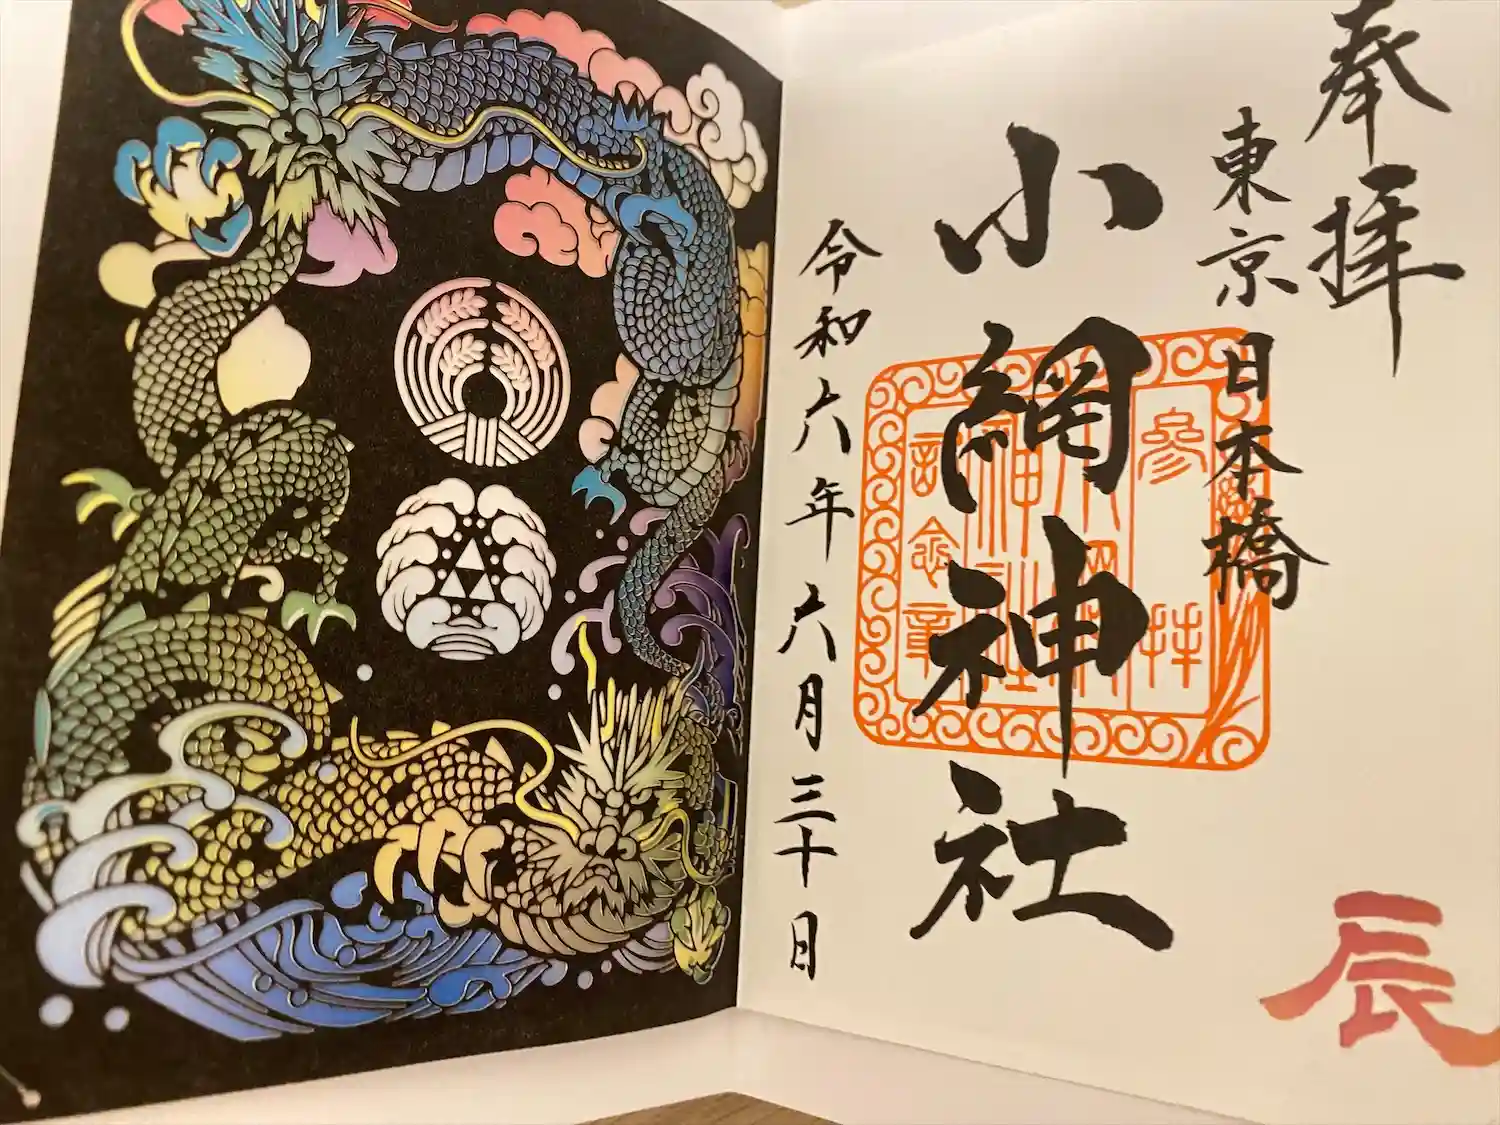 奉拝
東京日本橋
小網神社
令和六年六月三十日
参拝
小網神社
記念章
辰